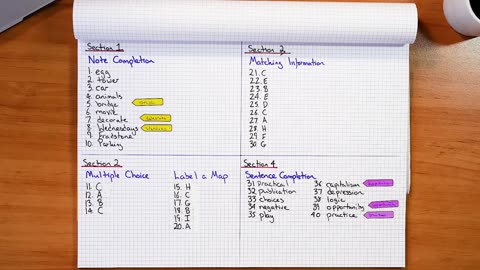 Section 1
Note Completion
1. egg
2. tower
3. car
4. animals
5. bridge
6. movie
7. decorate
8. Wednesdays
9.
10. Parking
Section 3
Matching Information
21. C
22. E
23. B
24. E
25. D
26. C
27. A
28. H
29. F
30 G
Section 2
Multiple Choice
11. C
12. A
13. B
14. C
Label a Map
15. H
16. C
17. G
18. B
19. I
20. A
Section 4
Sentence Completion
31 Practical
32 publication
33 choices
34 negative
35 play
36 capitalism
37 depression
38 logic
39 opportunity
40 practice